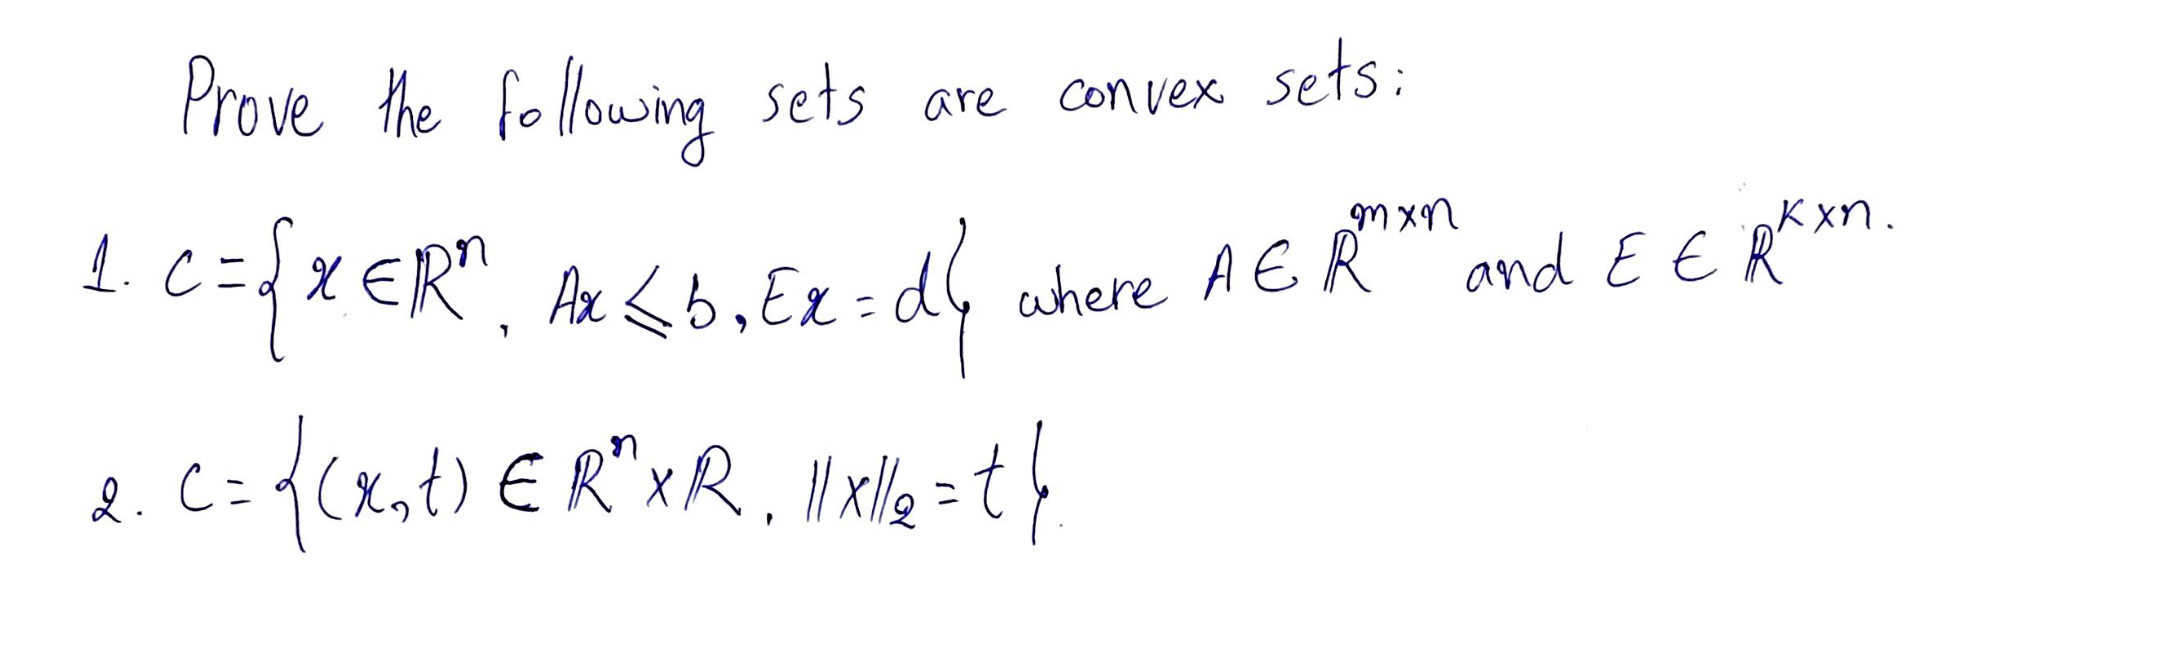 Prove the following sets are convex sets:
1. C = {x ∈ ℝⁿ, Ax ≤ b, Ex = d} where A ∈ ℝᵐˣⁿ and E ∈ ℝᴷˣⁿ.
2. C = {(x,t) ∈ ℝⁿ × ℝ, ‖x‖₂ = t}.